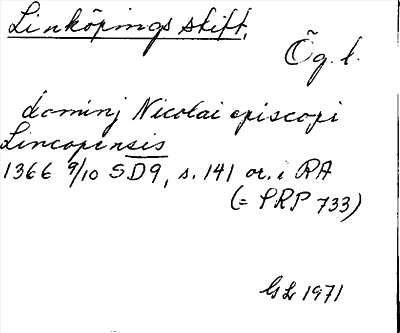 Linköpings stift.
Ög. l.
dominj Nicolai episcopi
Lincopensis
1366 9/10 SD9, s. 141 or. i RA
(= PRP 733)
GL 1971